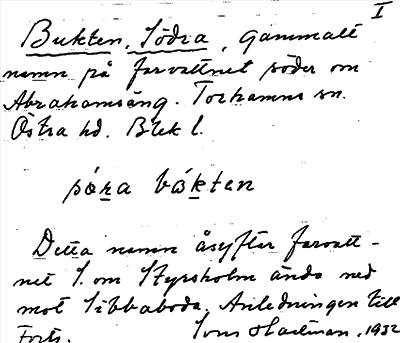 I
Bukten, Södra, gammalt
namn på farvattnet söder om
Abrahamsäng. Torhamns sn.
Östra hd. Blek l.
sö́ra bókten
Detta namn åsyftar farvatt-
net S. om Styrsholm ända ned
mot Sibbaboda. Anledningen till
Forts. 1932